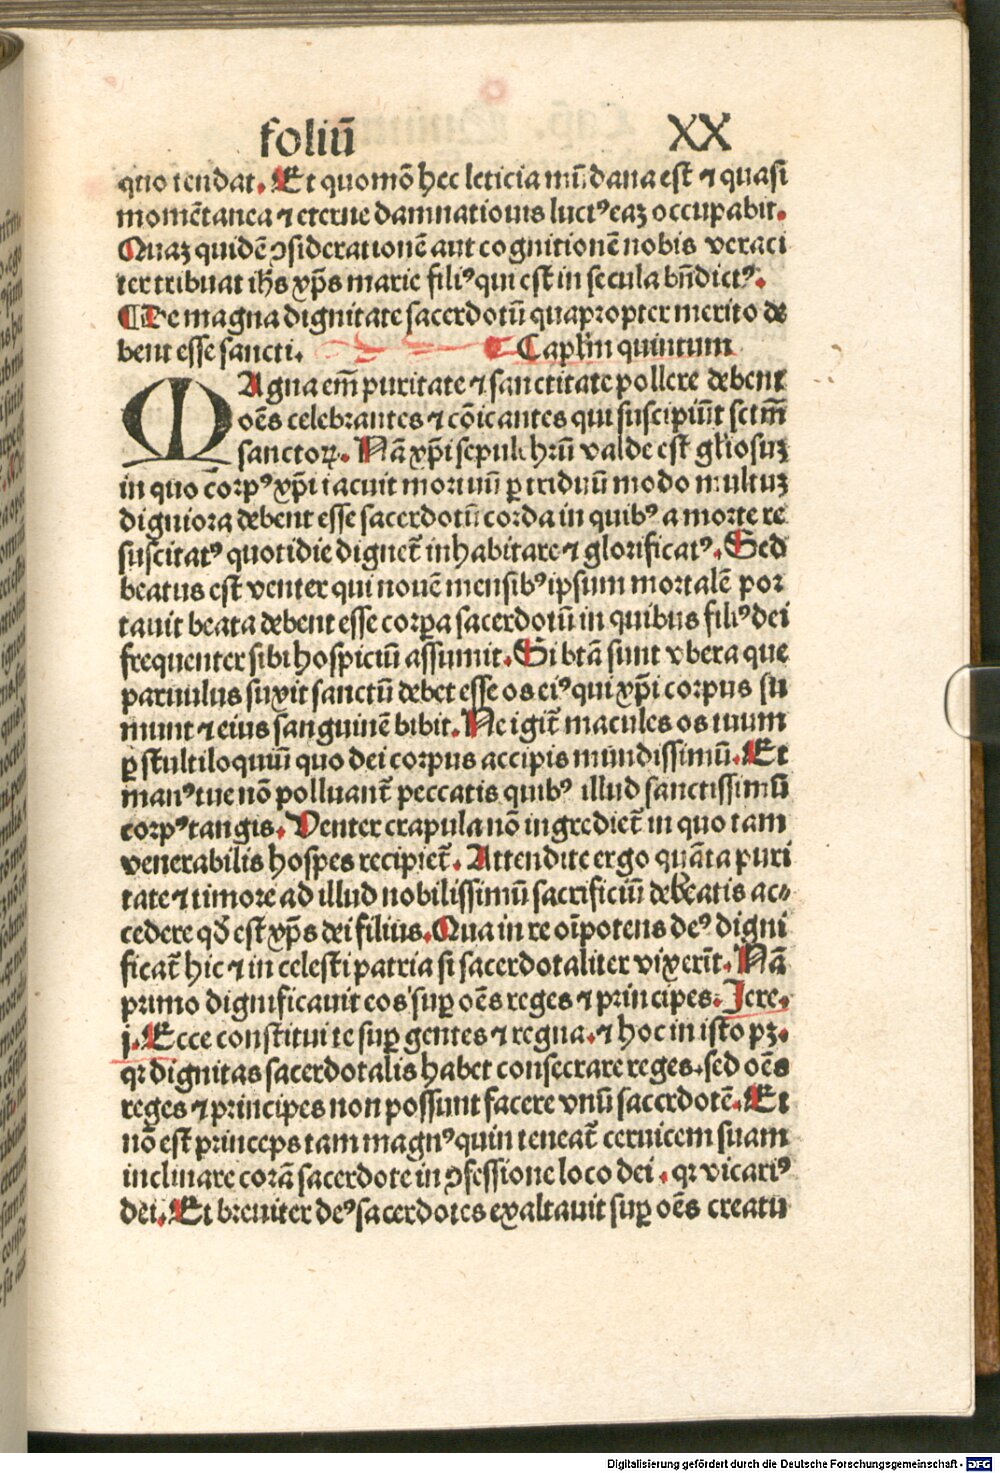 foliū XX
quo tendat. Et quomō hec leticia mūdana est ⁊ quasi
momētanea ⁊ eterne damnationis lucꝰ eaꝫ occupabit.
Quaꝫ quidē ꝯsiderationē aut cognitionē nobis veraci
ter tribuat ih̄s xp̄s marie filiꝰ qui est in secula bn̄dictꝰ.
¶ De magna dignitate sacerdotū quapropter merito de
bent esse sancti. Capl̄m quintum
MAgna em̄ puritate ⁊ sanctitate pollere debent
oēs celebrantes ⁊ cōicantes qui suscipiūt sctm̄
sanctoꝝ. Nā xp̄i sepulchrū valde est gl̄iosuꝫ
in quo corpꝰ xp̄i iacuit mortuū ꝑ triduū modo multuꝫ
digniora debent esse sacerdotū corda in quibꝰ a morte re
suscitatꝰ quotidie dignet̄ inhabitare ⁊ glorificatꝰ. Sed
beatus est venter qui nouē mensibꝰ ipsum mortalē por
tauit beata debent esse corꝑa sacerdotū in quibus filiꝰ dei
frequenter sibi hospiciū assumit. Si btā sunt vbera que
paruulus suxit sanctū debet esse os eiꝰ qui xp̄i corpus su
munt ⁊ eius sanguinē bibit. Ne igit̄ macules os tuum
ꝑ stultiloquiū quo dei corpus accipis mundissimū. Et
manꝰ tue nō polluant̄ peccatis quibꝰ illud sanctissimū
corpꝰ tangis. Venter crapula nō ingrediet̄ in quo tam
venerabilis hospes recipiet̄. Attendite ergo quāta puri
tate ⁊ timore ad illud nobilissimū sacrificiū debeatis ac⸗
cedere qđ est xp̄s dei filius. Qua in re oīpotens deꝰ digni
ficat̄ hic ⁊ in celesti patria si sacerdotaliter vixerīt. Nā
primo dignificauit eos suꝑ oēs reges ⁊ principes. Jere.
j. Ecce constitui te suꝑ gentes ⁊ regna. ⁊ hoc in isto pꝫ.
qꝛ dignitas sacerdotalis habet consecrare reges. sed oēs
reges ⁊ principes non possunt facere vnū sacerdotē. Et
nō est princeps tam magnꝰ quin teneat̄ ceruicem suam
inclinare corā sacerdote in ꝯfessione loco dei . qꝛ vicariꝰ
dei. Et breuiter deꝰ sacerdotes exaltauit suꝑ oēs creatu
Digitalisierung gefördert durch die Deutsche Forschungsgemeinschaft - DFG